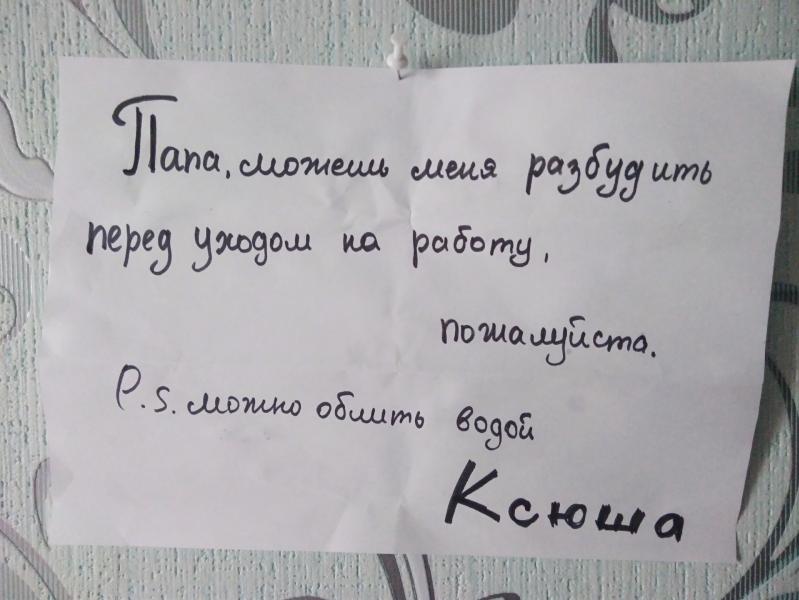 Папа, можешь меня разбудить
перед уходом на работу,
пожалуйста.
P.s. можно облить водой
Ксюша